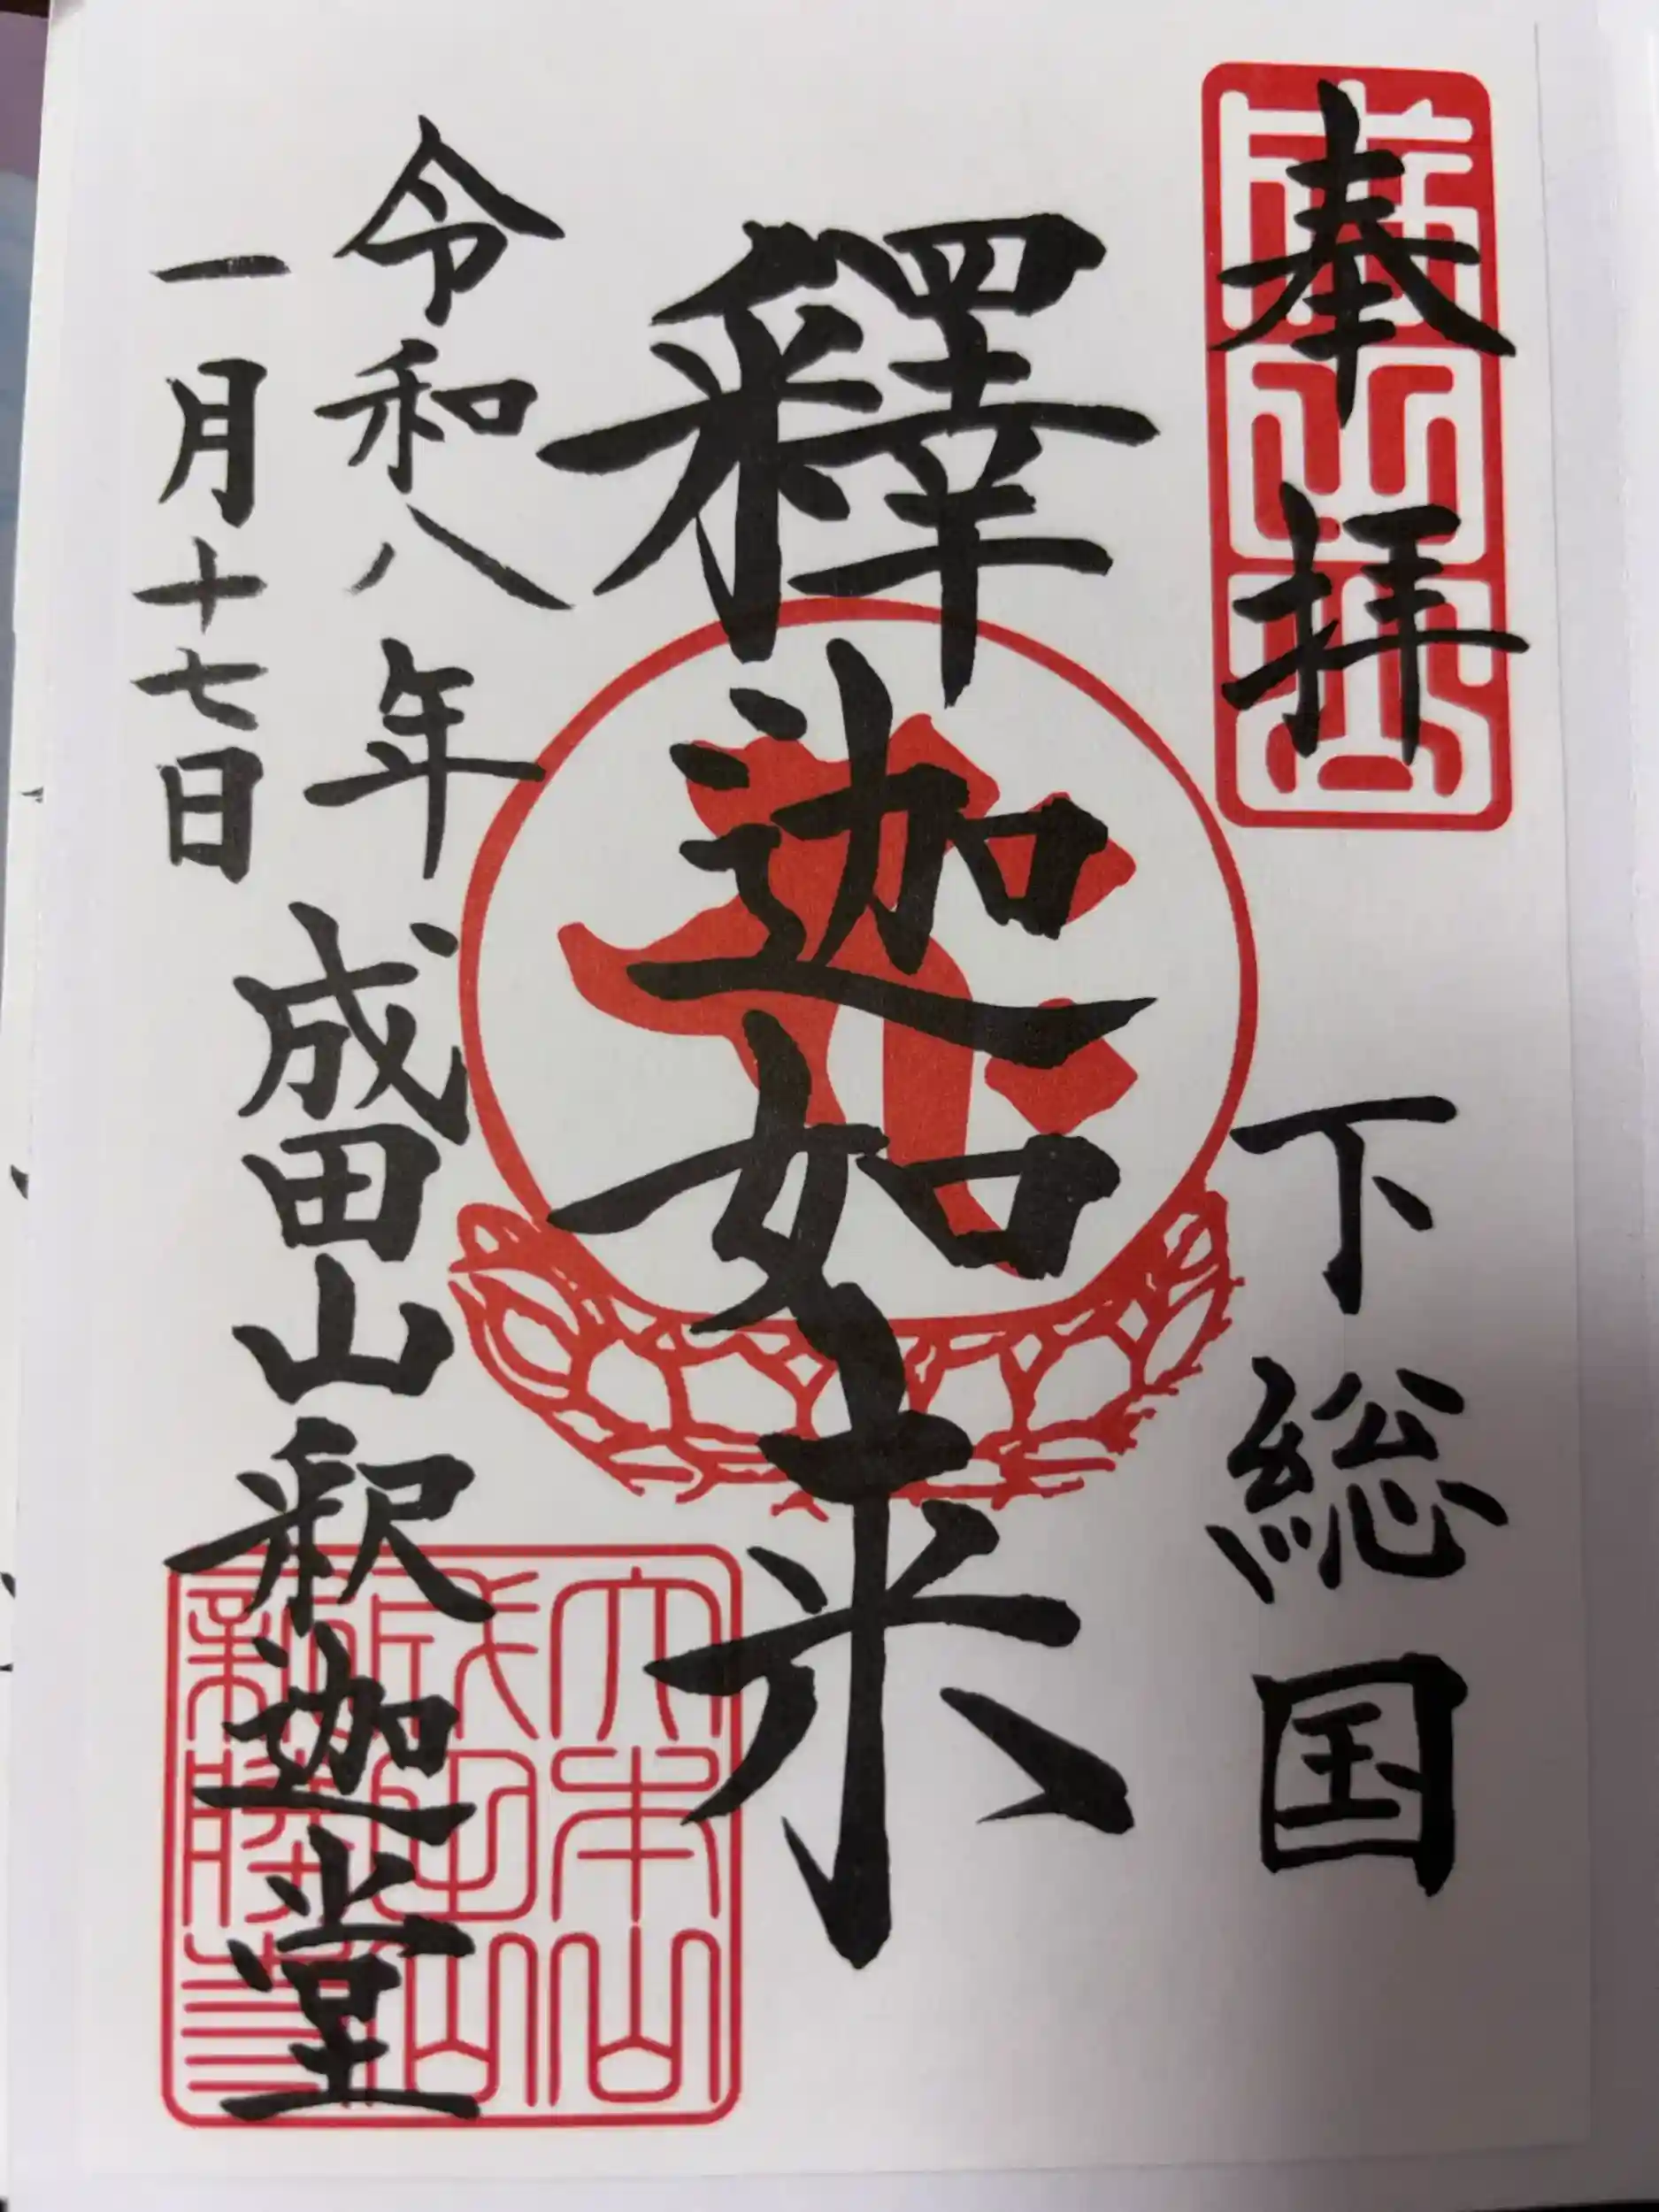 奉拝
下総国
釋迦如来
令和八年
一月十七日
成田山釈迦堂
大本山
成田山
新勝寺